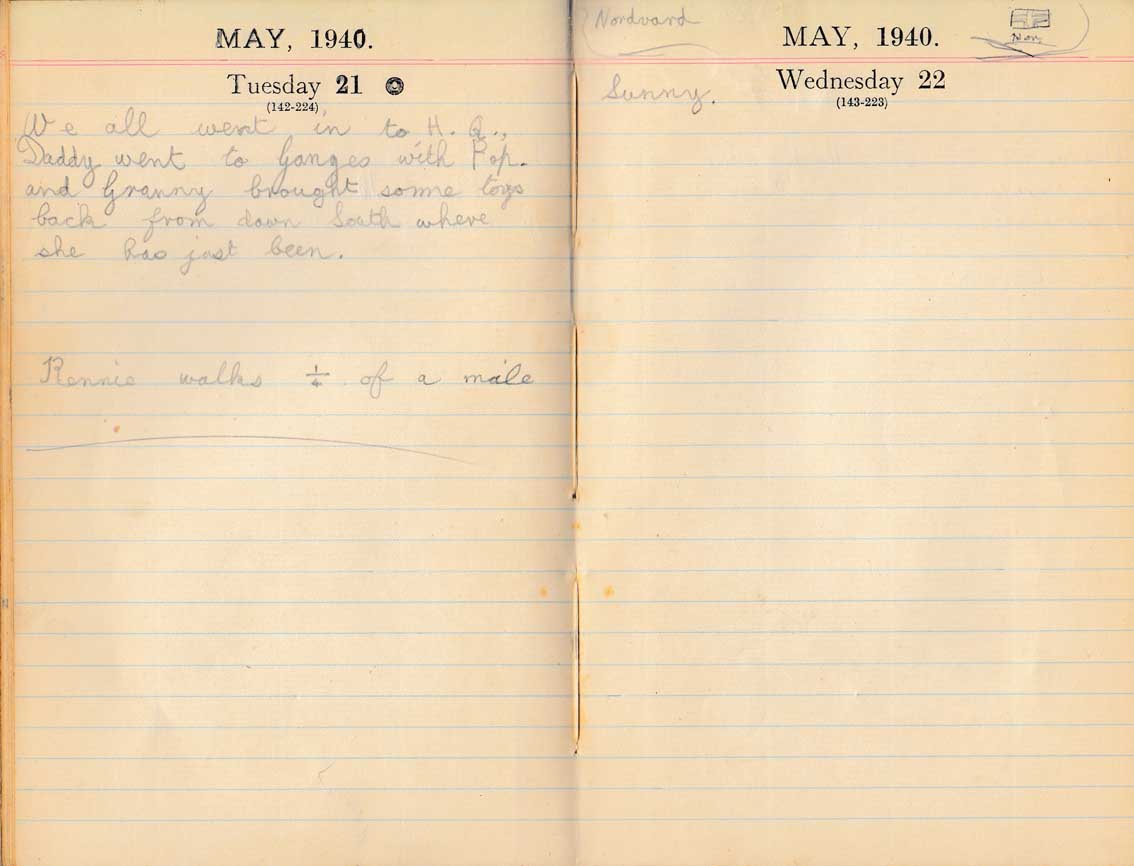 MAY, 1940.
Tuesday 21
(142-224)
We all went in to H. Q.,
Daddy went to Ganges with Pop.
and Granny brought some toys
back from down South where
she has just been.
Rennie walks 1/4 of a mile
Nordvard
MAY, 1940.
Nor.
Wednesday 22
(143-223)
Sunny.